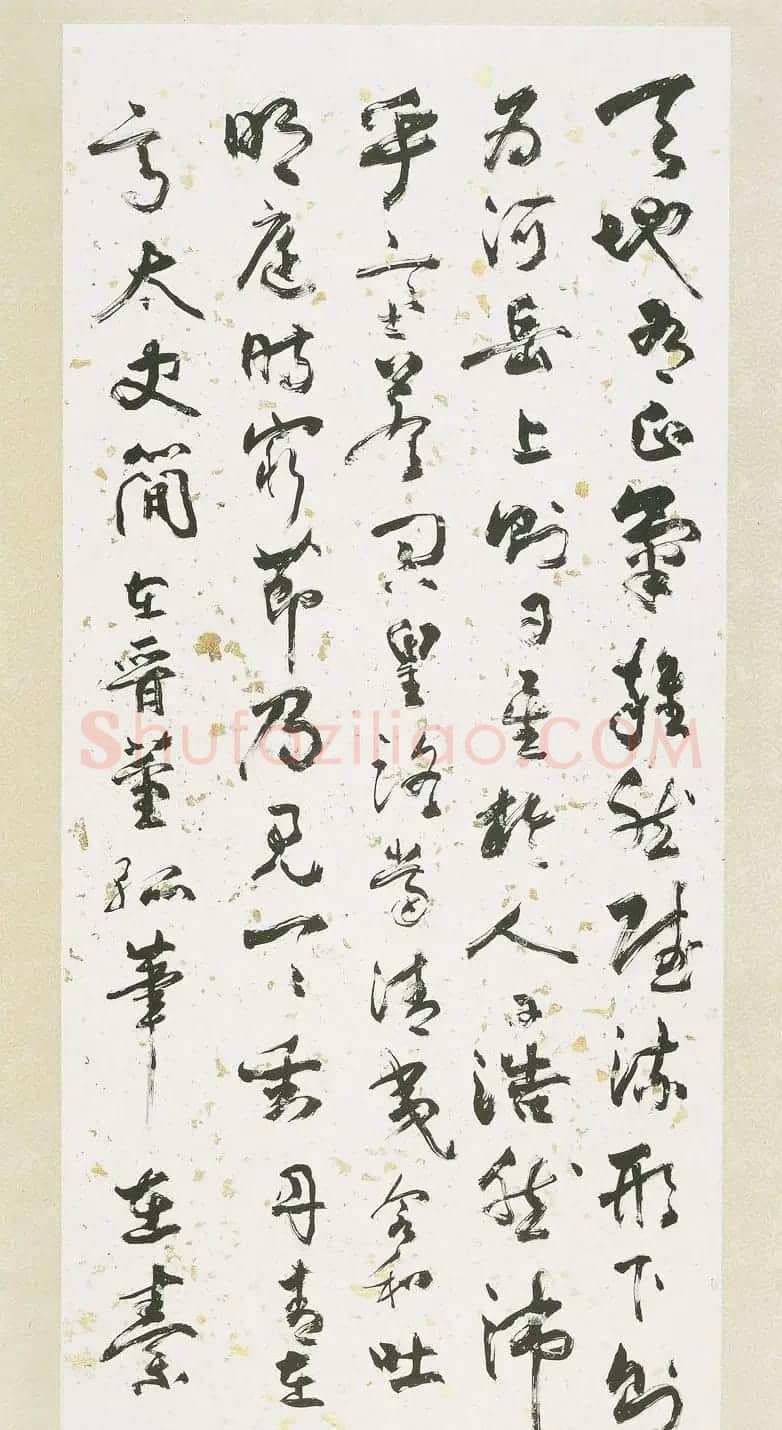 天地有正氣雜然賦流形下則
為河岳上則日星於人曰浩然沛
乎塞蒼冥皇路當清夷含和吐
明庭時窮節乃見一一垂丹青在
齊太史簡在晉董狐筆在秦
Shufaziliao.COM